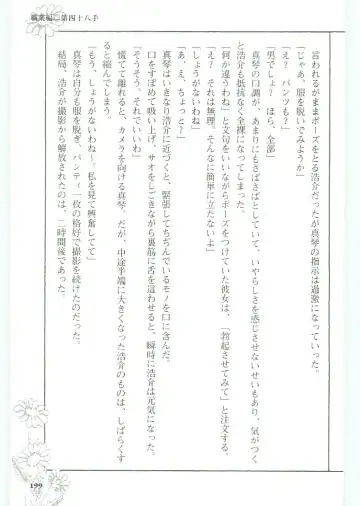 職業編　第四十八手
言われるがままポーズをとる浩介だったが真琴の指示は過激になっていった。
「じゃあ、服を脱いでみようか」
「え？　パンツも？」
「男でしょ？　ほら、全部」
真琴の口調が、あまりにもさばさばとしていて、いやらしさを感じさせないせいもあり、気がつく
と浩介も抵抗なく全裸になってしまった。
「何か違うわね」と文句をいいながらポーズをつけていた彼女は、「勃起させてみて」と注文する。
「え？　それは無理。そんなに簡単に立たないよ」
「しょうがないわね」
「あ、え、ちょっと？」
真琴はいきなり浩介に近づくと、緊張してちぢんでいるモノを口に含んだ。
口をすぼめて吸い上げ、サオをしごきながら裏筋に舌を這わせると、瞬時に浩介は元気になった。
「そうそう。それでいいわ」
慌てて離れると、カメラを向ける真琴。だが、中途半端に大きくなった浩介のものは、しばらくす
ると縮んでしまう。
「もう、しょうがないわね～。私を見て興奮してて」
真琴は自分も服を脱ぎ、パンティ一枚の格好で撮影を続けたのだった。
結局、浩介が撮影から解放されたのは、二時間後であった。
199